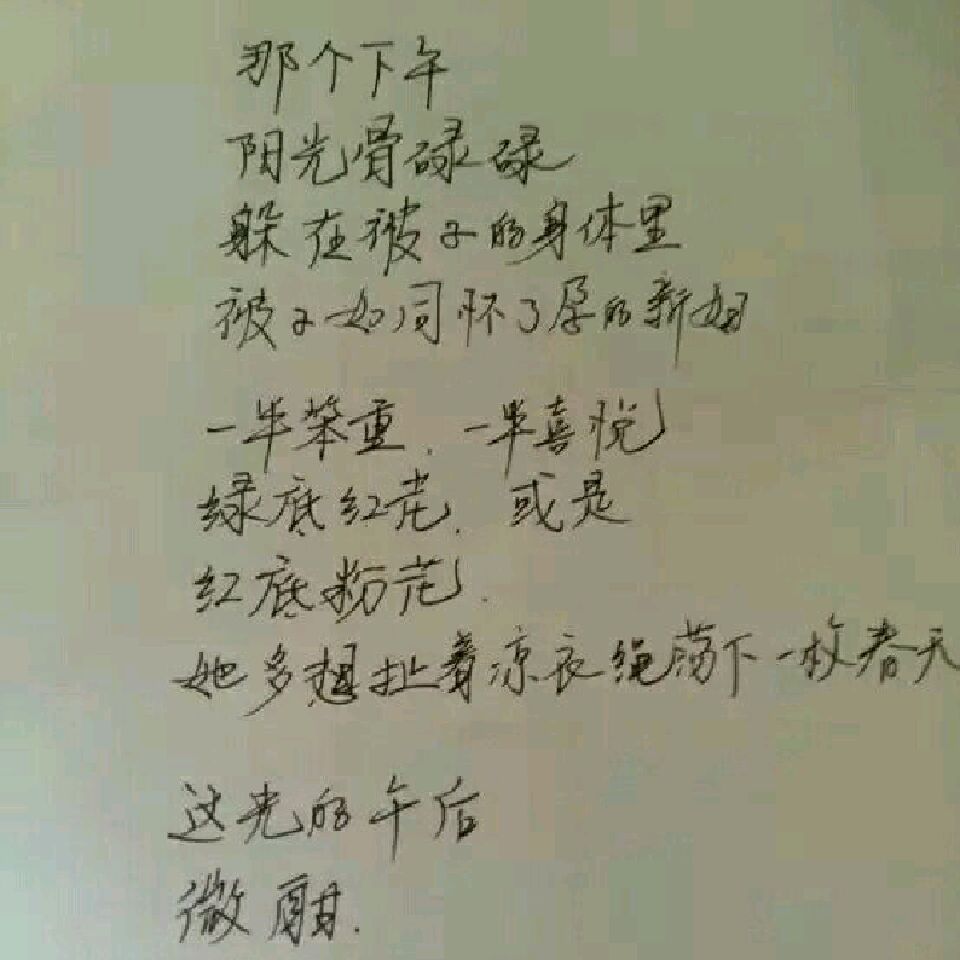 那个下午
阳光骨碌碌
躲在被子的身体里
被子如同怀了孕的新妇
一半笨重、一半喜悦
绿底红花、或是
红底粉花、
她多想扯着凉衣绳荡下一枚春天
这光的午后
微酣.